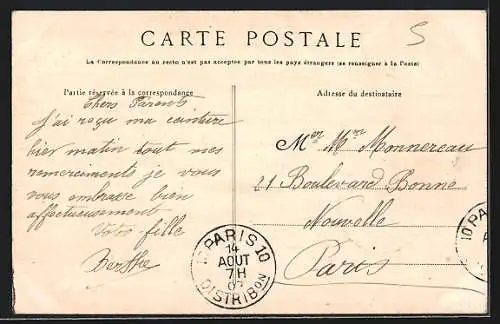 CARTE POSTALE
S
La Correspondance au recto n'est pas acceptée par tous les pays étrangers (se renseigner à la Poste)
Partie réservée à la correspondance
Chers Parents
J'ai reçu ma ceinture
hier matin tout mes
remerciments je vous
vous embrasse bien
affectueusement
Votre fille
Berthe
Adresse du destinataire
Mr Mme Monnereau
21 Boulevard Bonne
Nouvelle
Paris
10 PARIS 10
14
AOUT
7H
DISTRIBON
10 PA